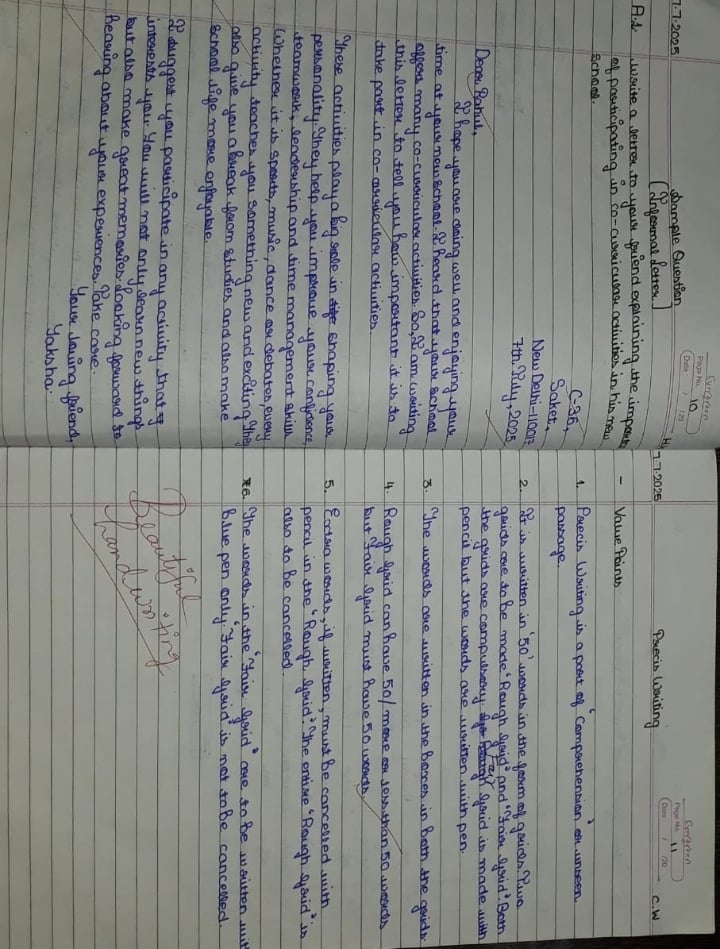 7-7-2025
Evergreen
Page No. 10
Date / /20
Sample Question
[Informal Letter]
A.1. Write a letter to your friend explaining the
of participating in co-curricular activities in his new
school.
C-36,
Saket,
New Delhi-110017
7th July, 2025
Dear Rahul,
I hope you are doing well and enjoying your
time at your new school. I heard that your school
offers many co-curricular activities. So, I am writing
this letter to tell you how important it is to
take part in co-curricular activities.
These activities play a big role in shaping your
personality. They help you improve your confidence,
teamwork, leadership and time management skills
Whether it is sports, music, dance or debates, every
activity teaches you something new and exciting. They
also give you a break from studies and also make
school life more enjoyable.
I suggest you participate in any activity that
interests you. You will not only learn new things
but also make great memories. Looking forward to
hearing about your experiences. Take care.
Your loving friend,
Yaksha.
7-7-2025
Evergreen
Page No. 11
Date / /20
Precis Writing
C.W
- Value Points
1. Precis Writing is a part of "Comprehension" or unseen
passage.
2. It is written in '50' words in the form of grids. Two
grids are to be made "Rough Grid" and "Fair Grid". Both
the grids are compulsory. Rough Fair grid is made with
pencil but the words are written with pen.
3. The words are written in the boxes in both the grids.
4. Rough Grid can have 50/more or less than 50 words
but Fair Grid must have 50 words.
5. Extra words, if written, must be cancelled with
pencil in the "Rough Grid". The entire "Rough Grid" is
also to be cancelled.
6. The words in the "Fair Grid" are to be written with
blue pen only. "Fair Grid" is not to be cancelled.
Beautiful
handwriting